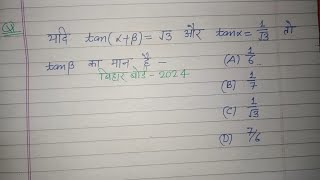 Q. यदि tan(α+β) = √3 और tanα = 1/√3 तो
tanβ का मान है - (A) 1/6
बिहार बोर्ड - 2024
(B) 1/7
(C) 1/√3
(D) 7/6